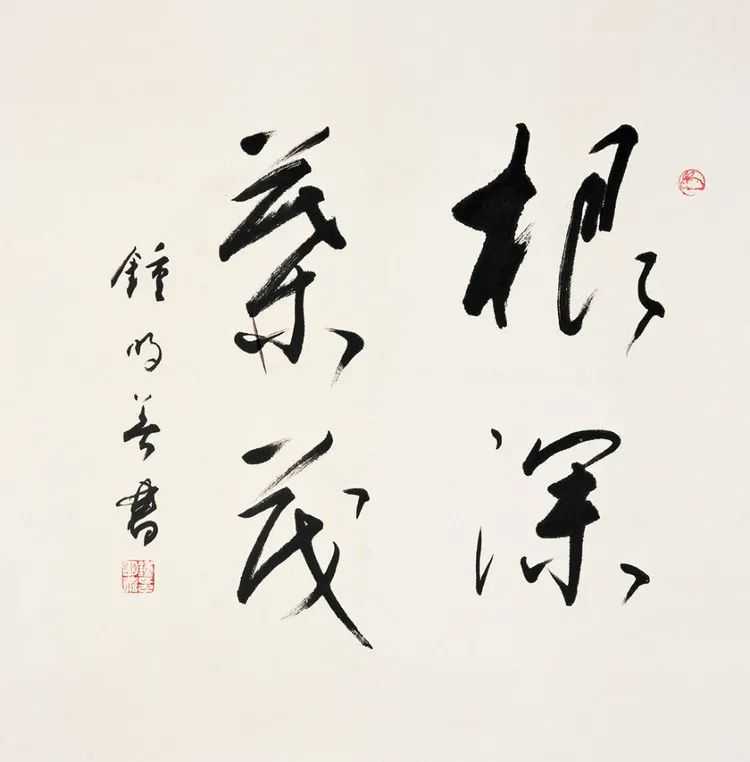 根深
葉茂
鍾明善書